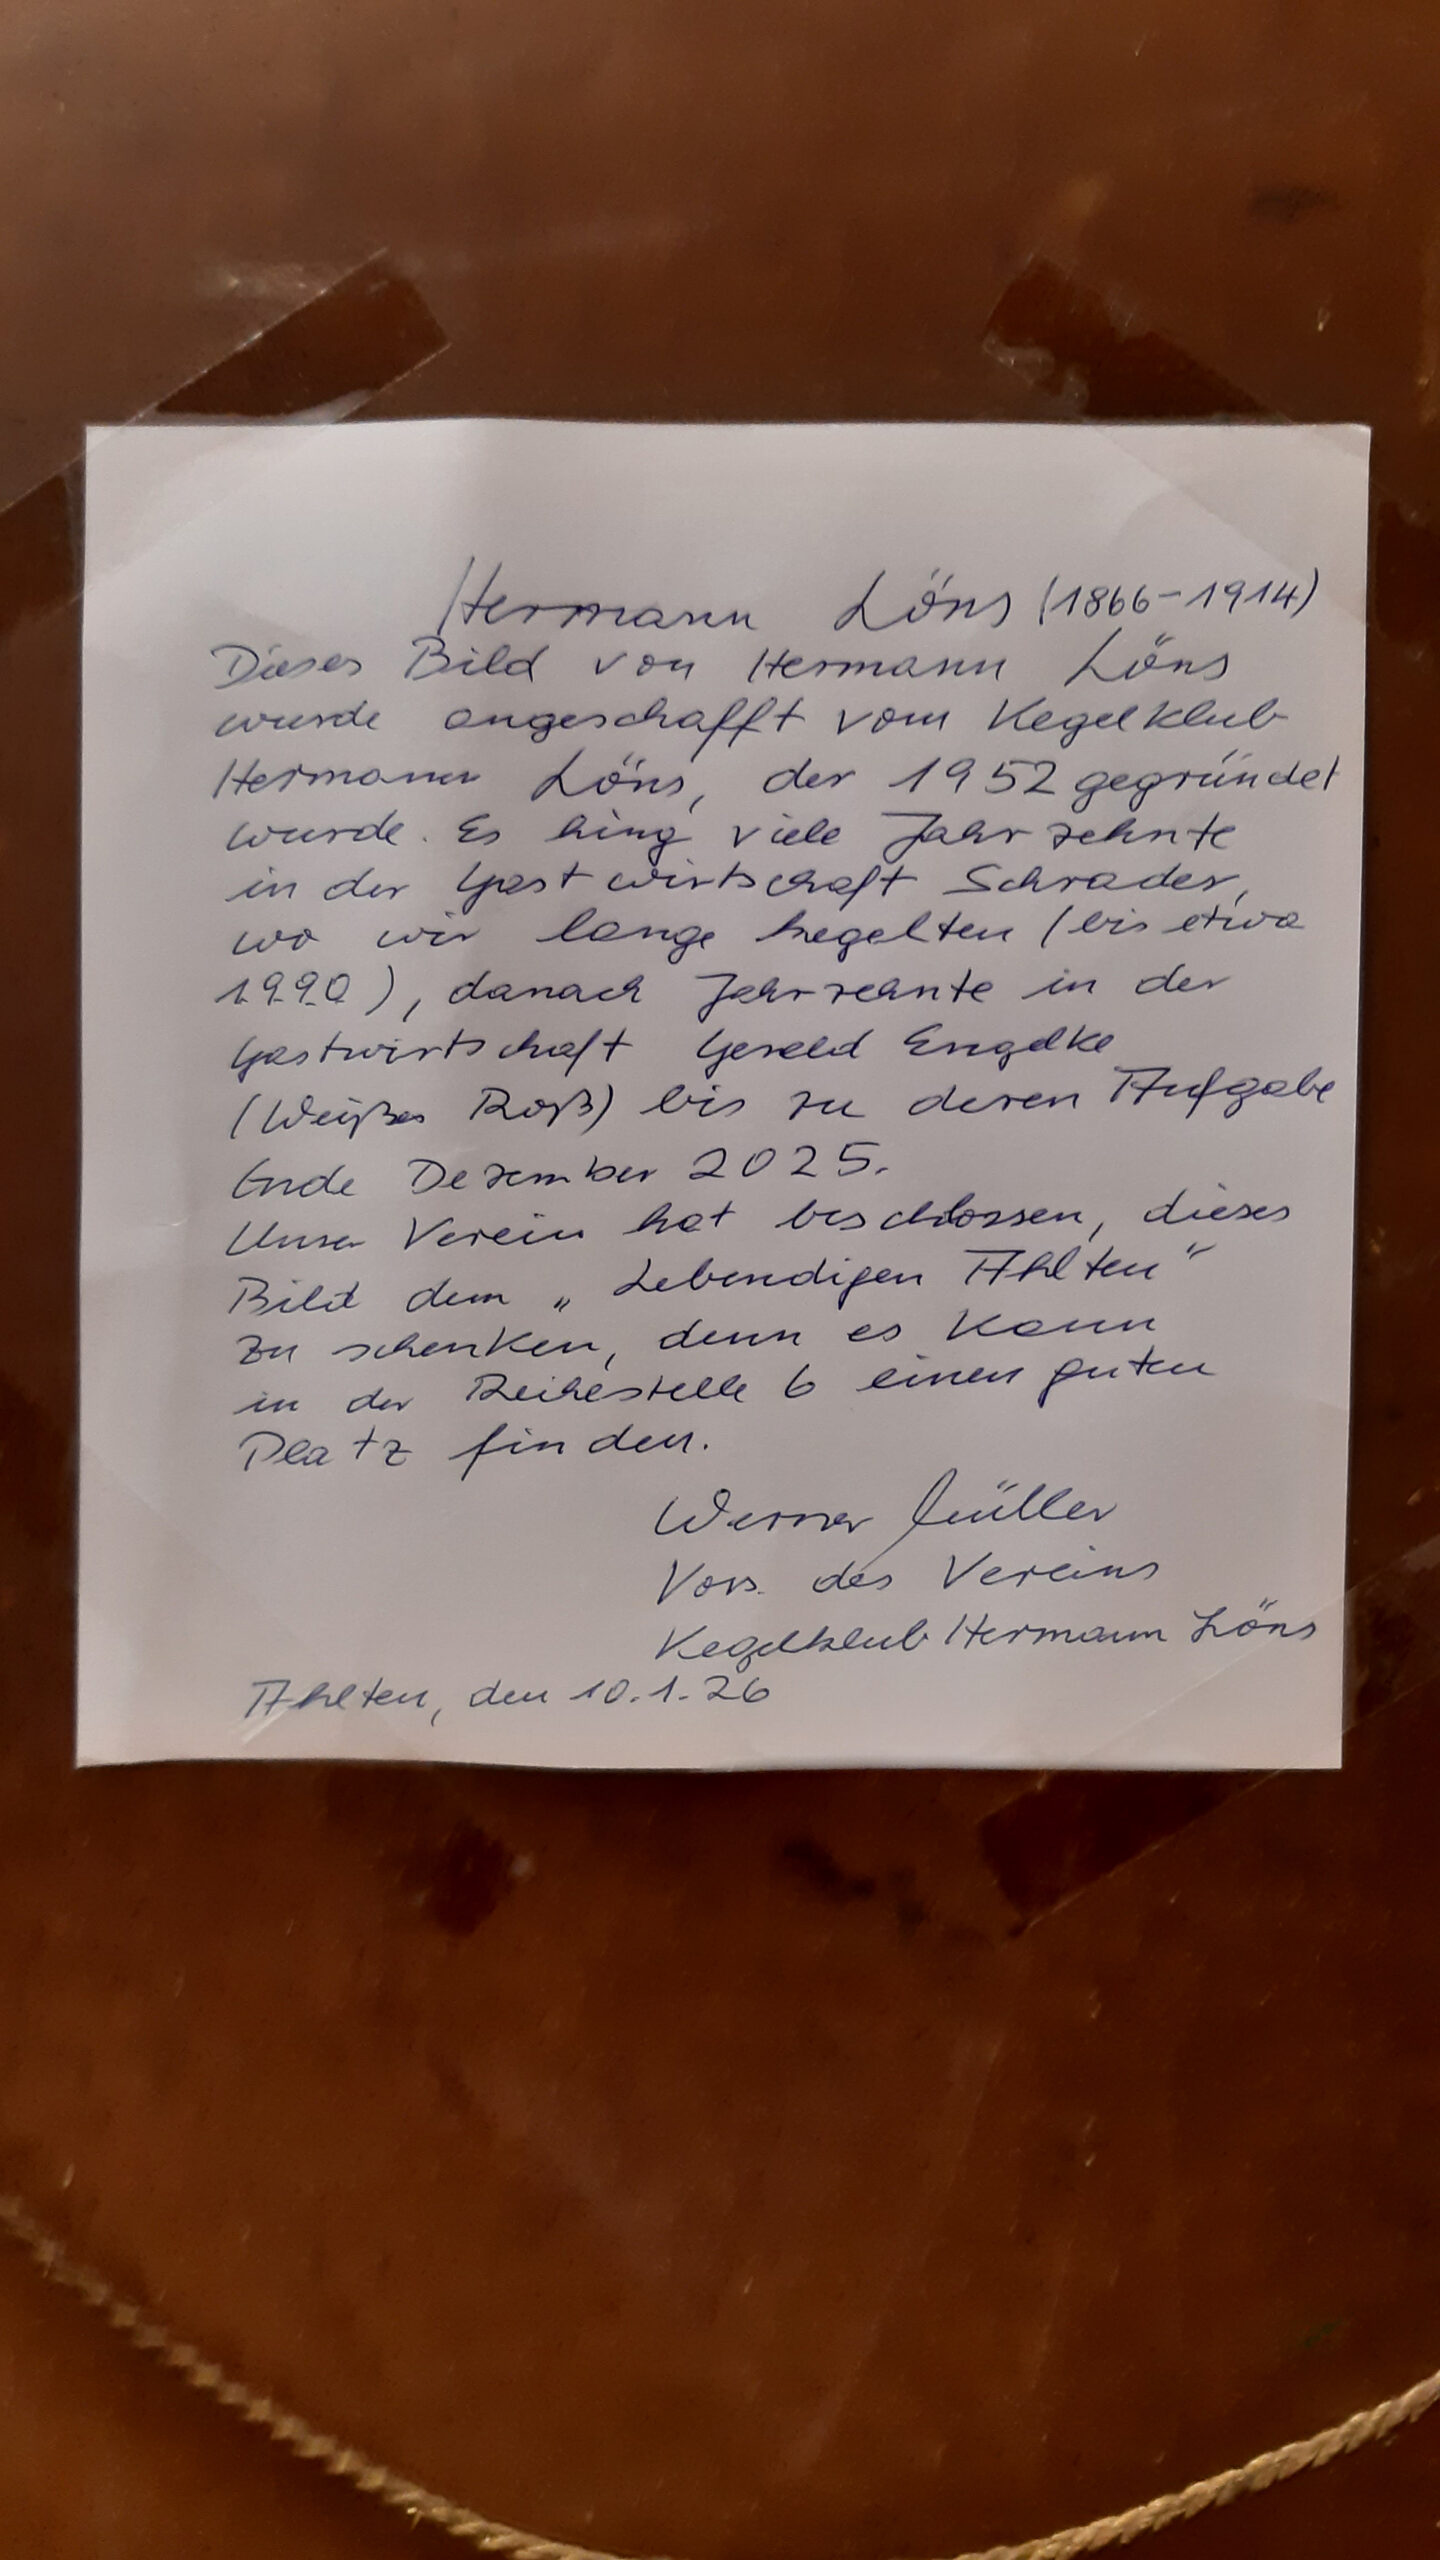 Hermann Löns (1866-1914)
Dieses Bild von Hermann Löns
wurde angeschafft vom Kegelklub
Hermann Löns, der 1952 gegründet
wurde. Es hing viele Jahrzehnte
in der Gastwirtschaft Schrader,
wo wir lange kegelten (bis etwa
1990), danach Jahrzehnte in der
Gastwirtschaft Gerald Engelke
(Weißes Roß) bis zu deren Aufgabe
Ende Dezember 2025.
Unser Verein hat beschlossen, dieses
Bild dem „Lebendigen Ahlten"
zu schenken, denn es kann
in der Reihestelle 6 einen guten
Platz finden.
Werner Müller
Vors. des Vereins
Kegelklub Hermann Löns
Ahlten, den 10.1.26